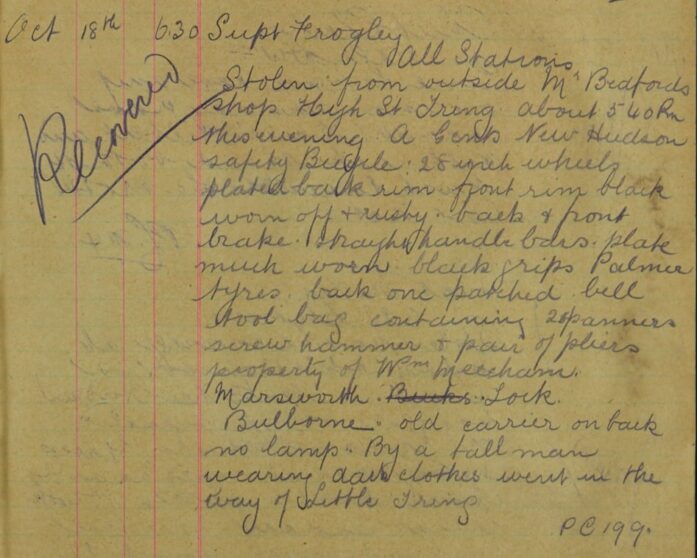 Oct 18th 6.30 Supt Frogley
All Stations
Recovered
Stolen from outside Mr Bedfords
shop High St Tring about 5 40 Pm
this evening A Gents New Hudson
safety Bicycle. 28 inch wheels
plated back rim front rim black
worn off & rusty. back & front
brake. straight handle bars. plate
much worn black grips Palmer
tyres. back one patched. bell
tool bag containing 2 spanners
screw hammer & pair of pliers
property of Wm Meecham.
Marsworth. Bucks. Lock.
Bulborne. old carrier on back
no lamp. By a tall man
wearing dark clothes went in the
way of Little Tring
PC 199.